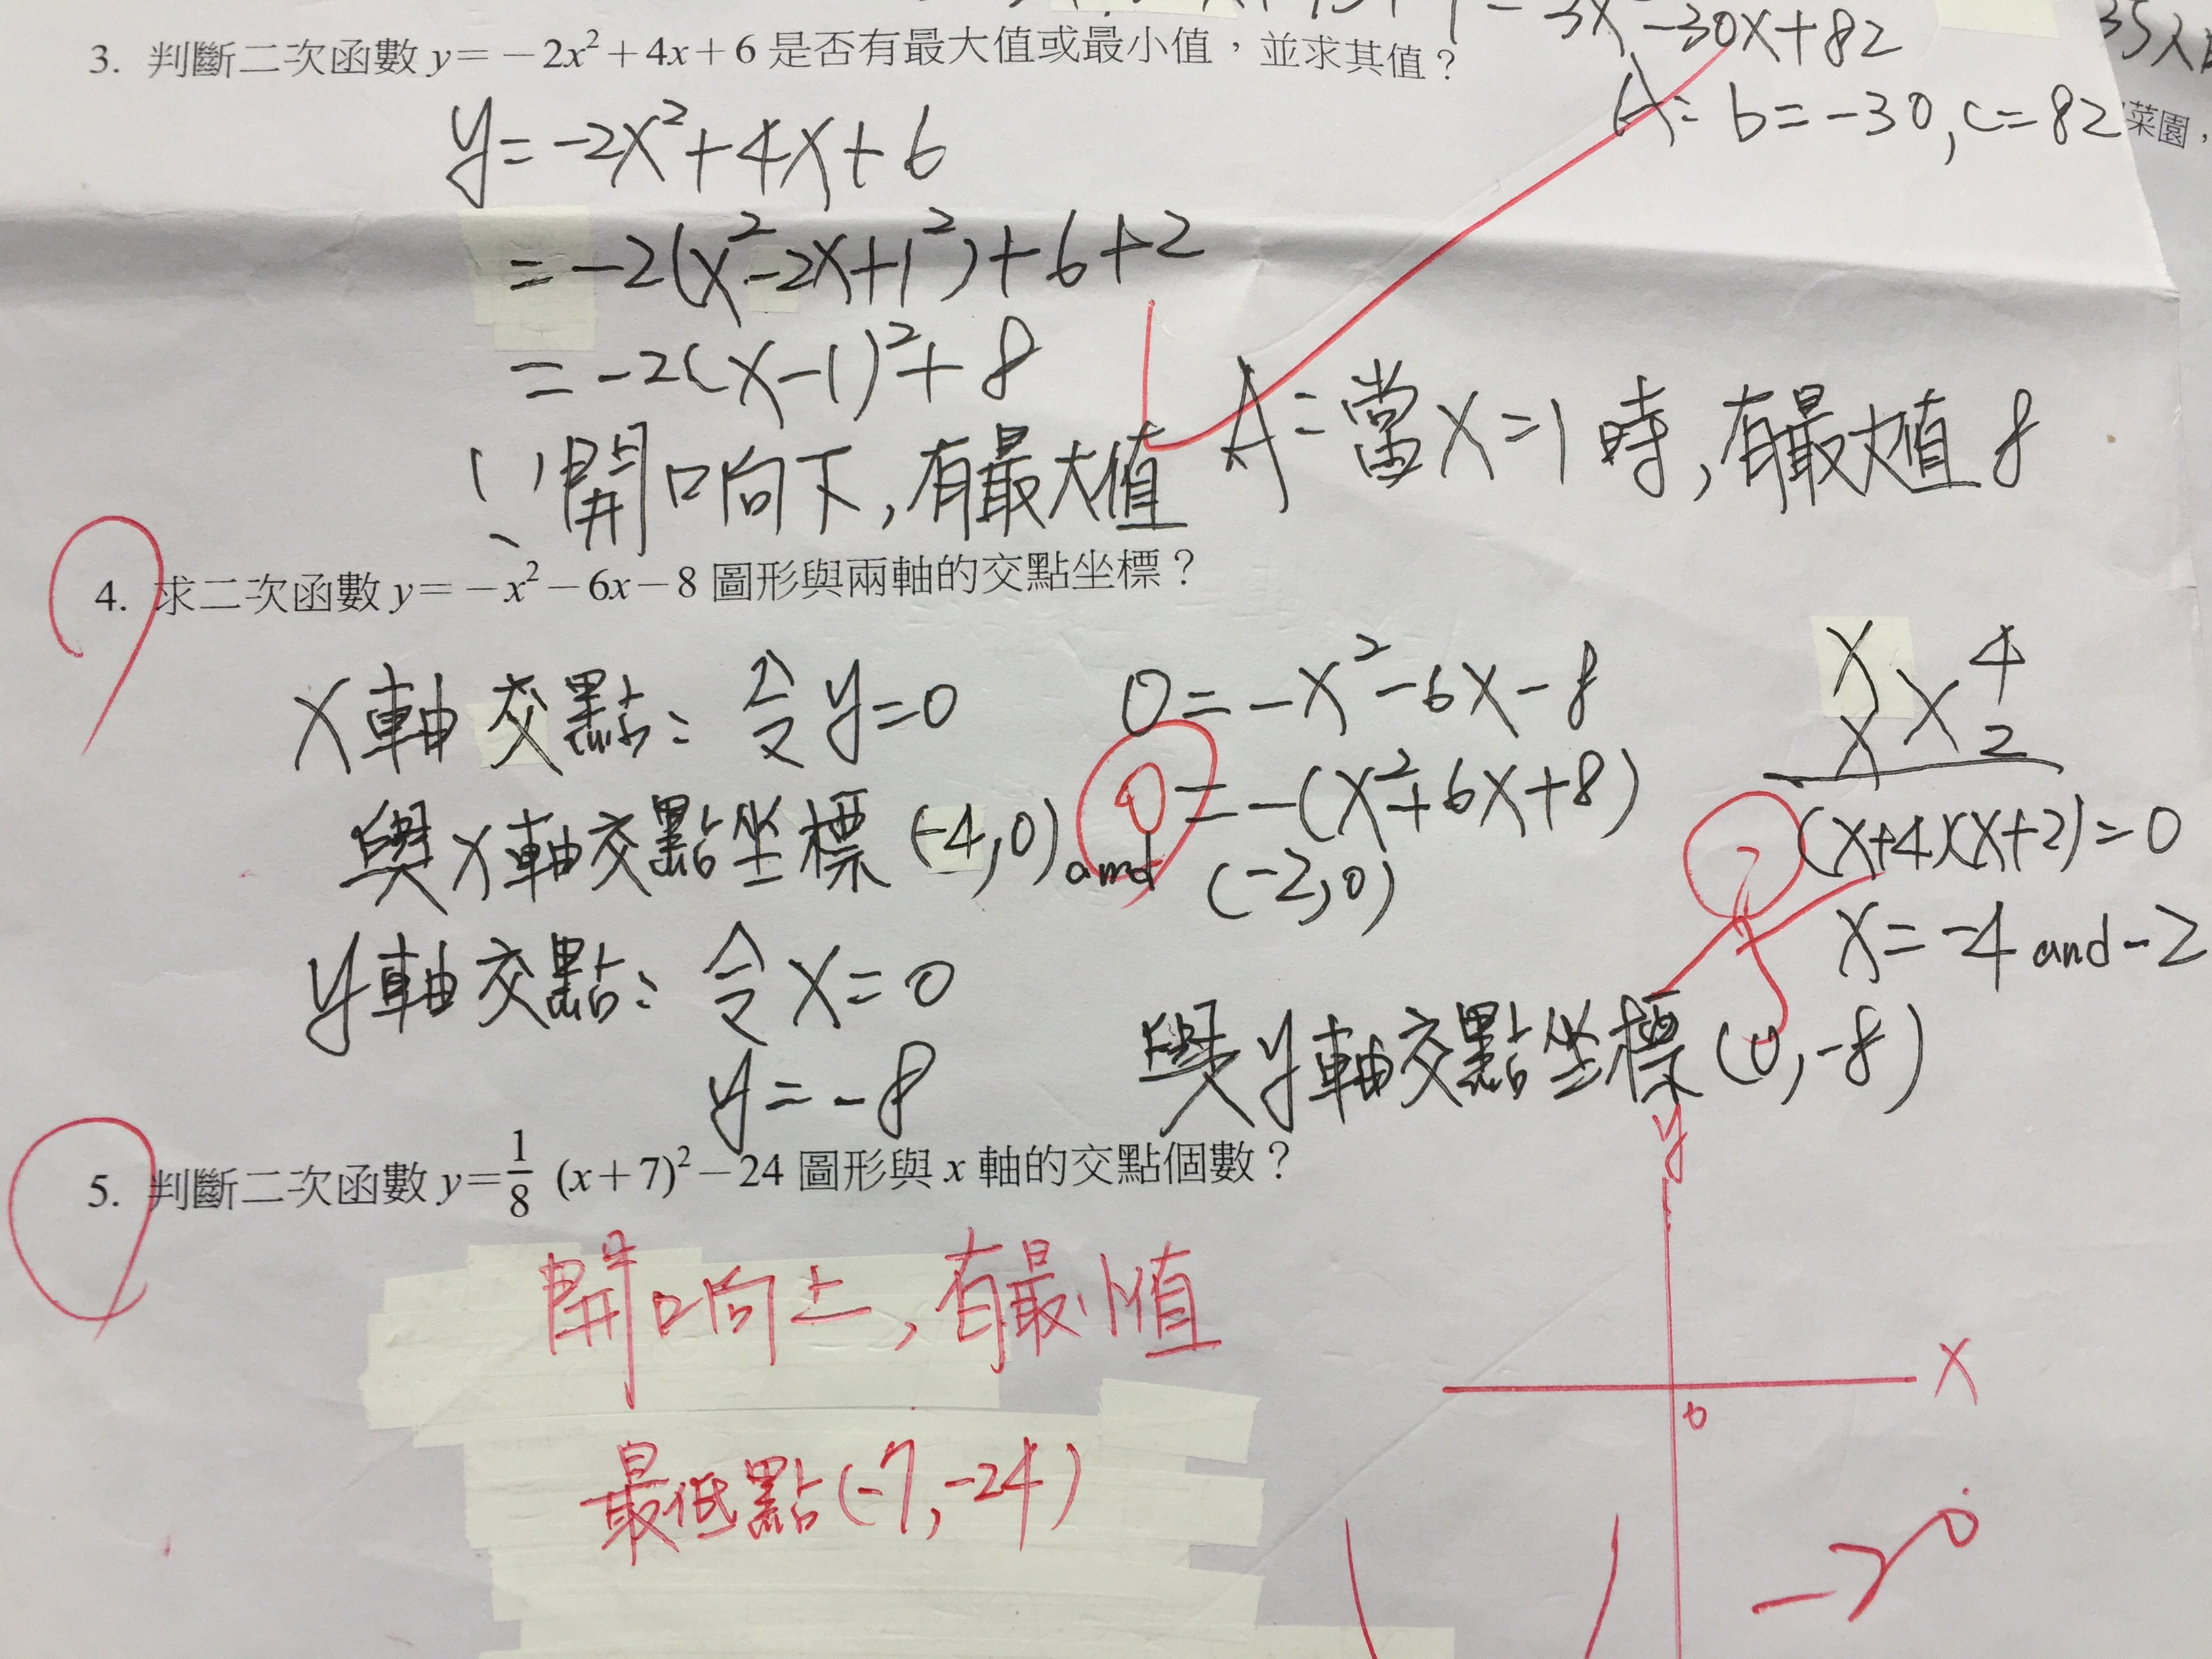 -3x²-30x+82
A: b=-30, c=82
35人
菜園，
3. 判斷二次函數 y=-2x²+4x+6 是否有最大值或最小值，並求其值？
y=-2x²+4x+6
=-2(x²-2x+1²)+6+2
=-2(x-1)²+8
∵開口向下,有最大值
A:當x=1時,有最大值8
4. 求二次函數 y=-x²-6x-8 圖形與兩軸的交點坐標？
x軸交點:令y=0
0=-x²-6x-8
0=-(x²+6x+8)
x 4
x 2
(x+4)(x+2)=0
x=-4 and -2
與x軸交點坐標(-4,0) and (-2,0)
y軸交點:令x=0
y=-8
與y軸交點坐標(0,-8)
5. 判斷二次函數 y=1/8 (x+7)²-24 圖形與 x 軸的交點個數？
開口向上,有最小值
最低點(-7,-24)
y
x
0